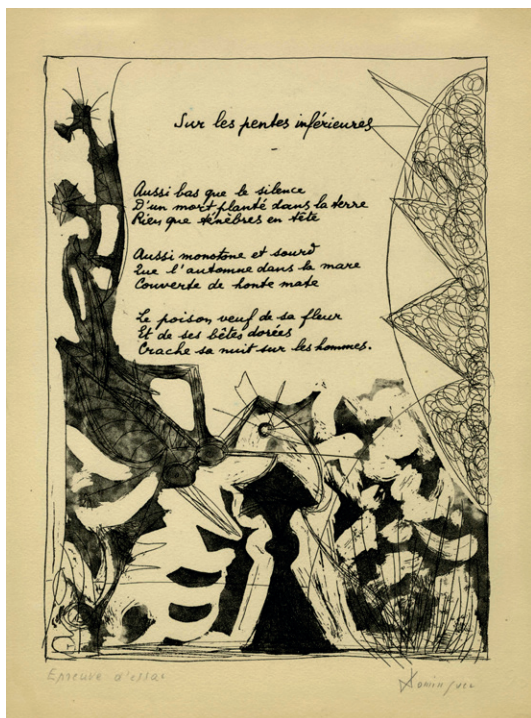 Sur les pentes inférieures
Aussi bas que le silence
D'un mort planté dans la terre
Rien que ténèbres en tête
Aussi monotone et sourd
Que l'automne dans la mare
Couverte de honte mate
Le poison veuf de sa fleur
Et de ses bêtes dorées
Crache sa nuit sur les hommes.
Epreuve d'essai
Dominguez